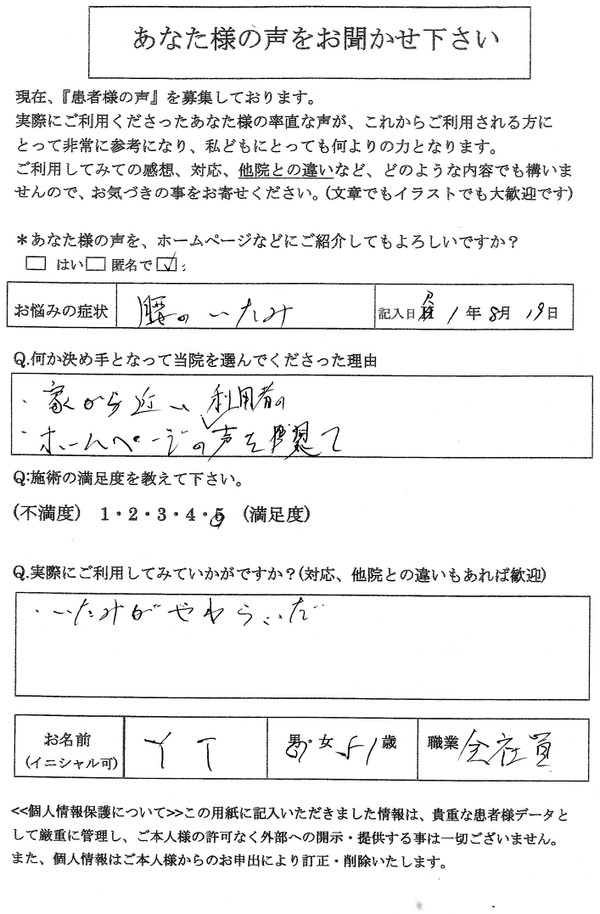 あなた様の声をお聞かせ下さい
現在、『患者様の声』を募集しております。
実際にご利用くださったあなた様の率直な声が、これからご利用される方に
とって非常に参考になり、私どもにとっても何よりの力となります。
ご利用してみての感想、対応、他院との違いなど、どのような内容でも構いま
せんので、お気づきの事をお寄せください。(文章でもイラストでも大歓迎です)
*あなた様の声を、ホームページなどにご紹介してもよろしいですか?
□ はい □ 匿名で ☑ :
お悩みの症状 腰のいたみ 記入日 1年8月19日
Q.何か決め手となって当院を選んでくださった理由
・家から近い 利用者の
・ホームページの声を
Q:施術の満足度を教えて下さい。
(不満度) 1・2・3・4・5 (満足度)
Q.実際にご利用してみていかがですか?(対応、他院との違いもあれば歓迎)
・いたみがやわらいだ
お名前 (イニシャル可) Y T 男・女 51歳 職業 会社員
<<個人情報保護について>>この用紙に記入いただきました情報は、貴重な患者様データと
して厳重に管理し、ご本人様の許可なく外部への開示・提供する事は一切ございません。
また、個人情報はご本人様からのお申出により訂正・削除いたします。